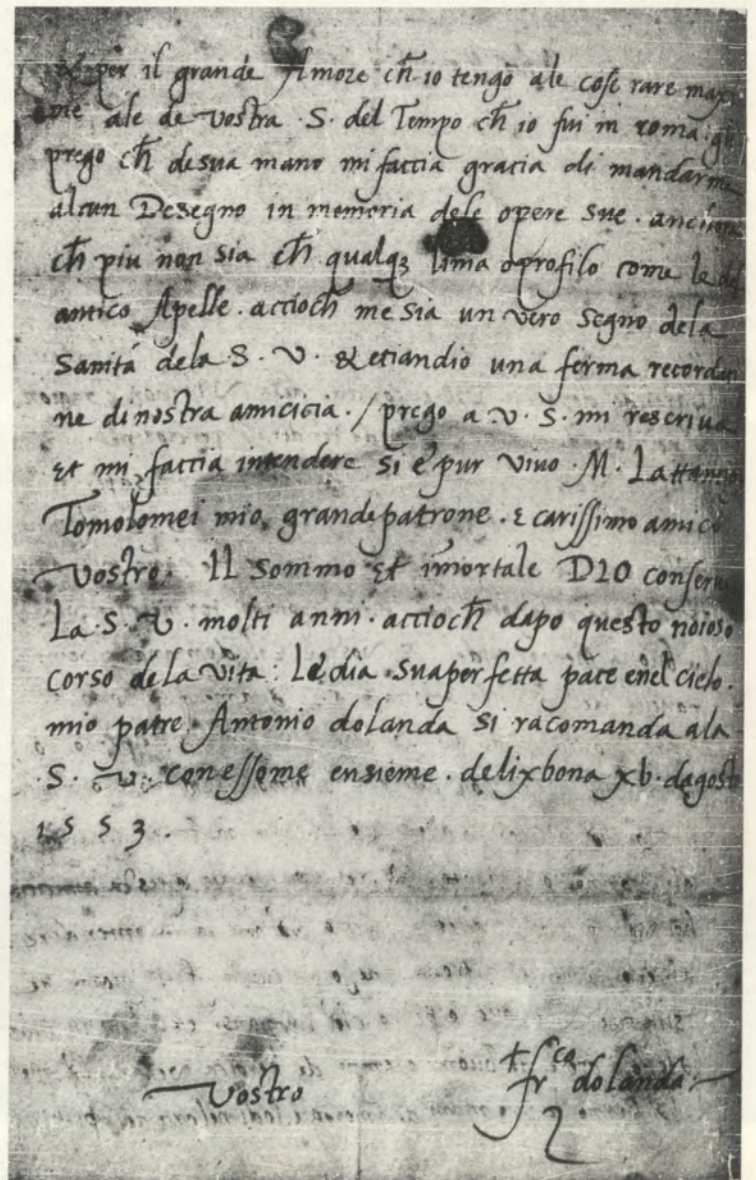 & per il grande Amore ch̄ io tengo ale cose rare max
me ale de vostra . S . del Tempo ch̄ io fui in roma .
prego ch̄ de sua mano mi faccia gracia di mandarme
alcun Desegno in memoria dele opere sue . anchora
ch̄ piu non sia ch̄ qualq3 lima o profilo come le del
antico Apelle . accioch̄ me sia un vero segno dela
Sanitá dela S . V . & etiandio una ferma recorda
ne di nostra amicicia . / prego a v . S . mi rescriva
et mi faccia intendere si e pur vivo . M . Lattantio
Tomolomei mio grande patrone . E carissimo amico
vostro . IL Sommo et īmortale DIO conserv
La . S . V . molti anni . accioch̄ dapo questo noioso
corso de la vita : Le dia . sua perfetta pace enel cielo .
mio patre . Antonio dolanda si racomanda ala
. S . v . con essome ensieme . de lixbona xb . dagosto
1553 .
vostro
fr^ca dolanda